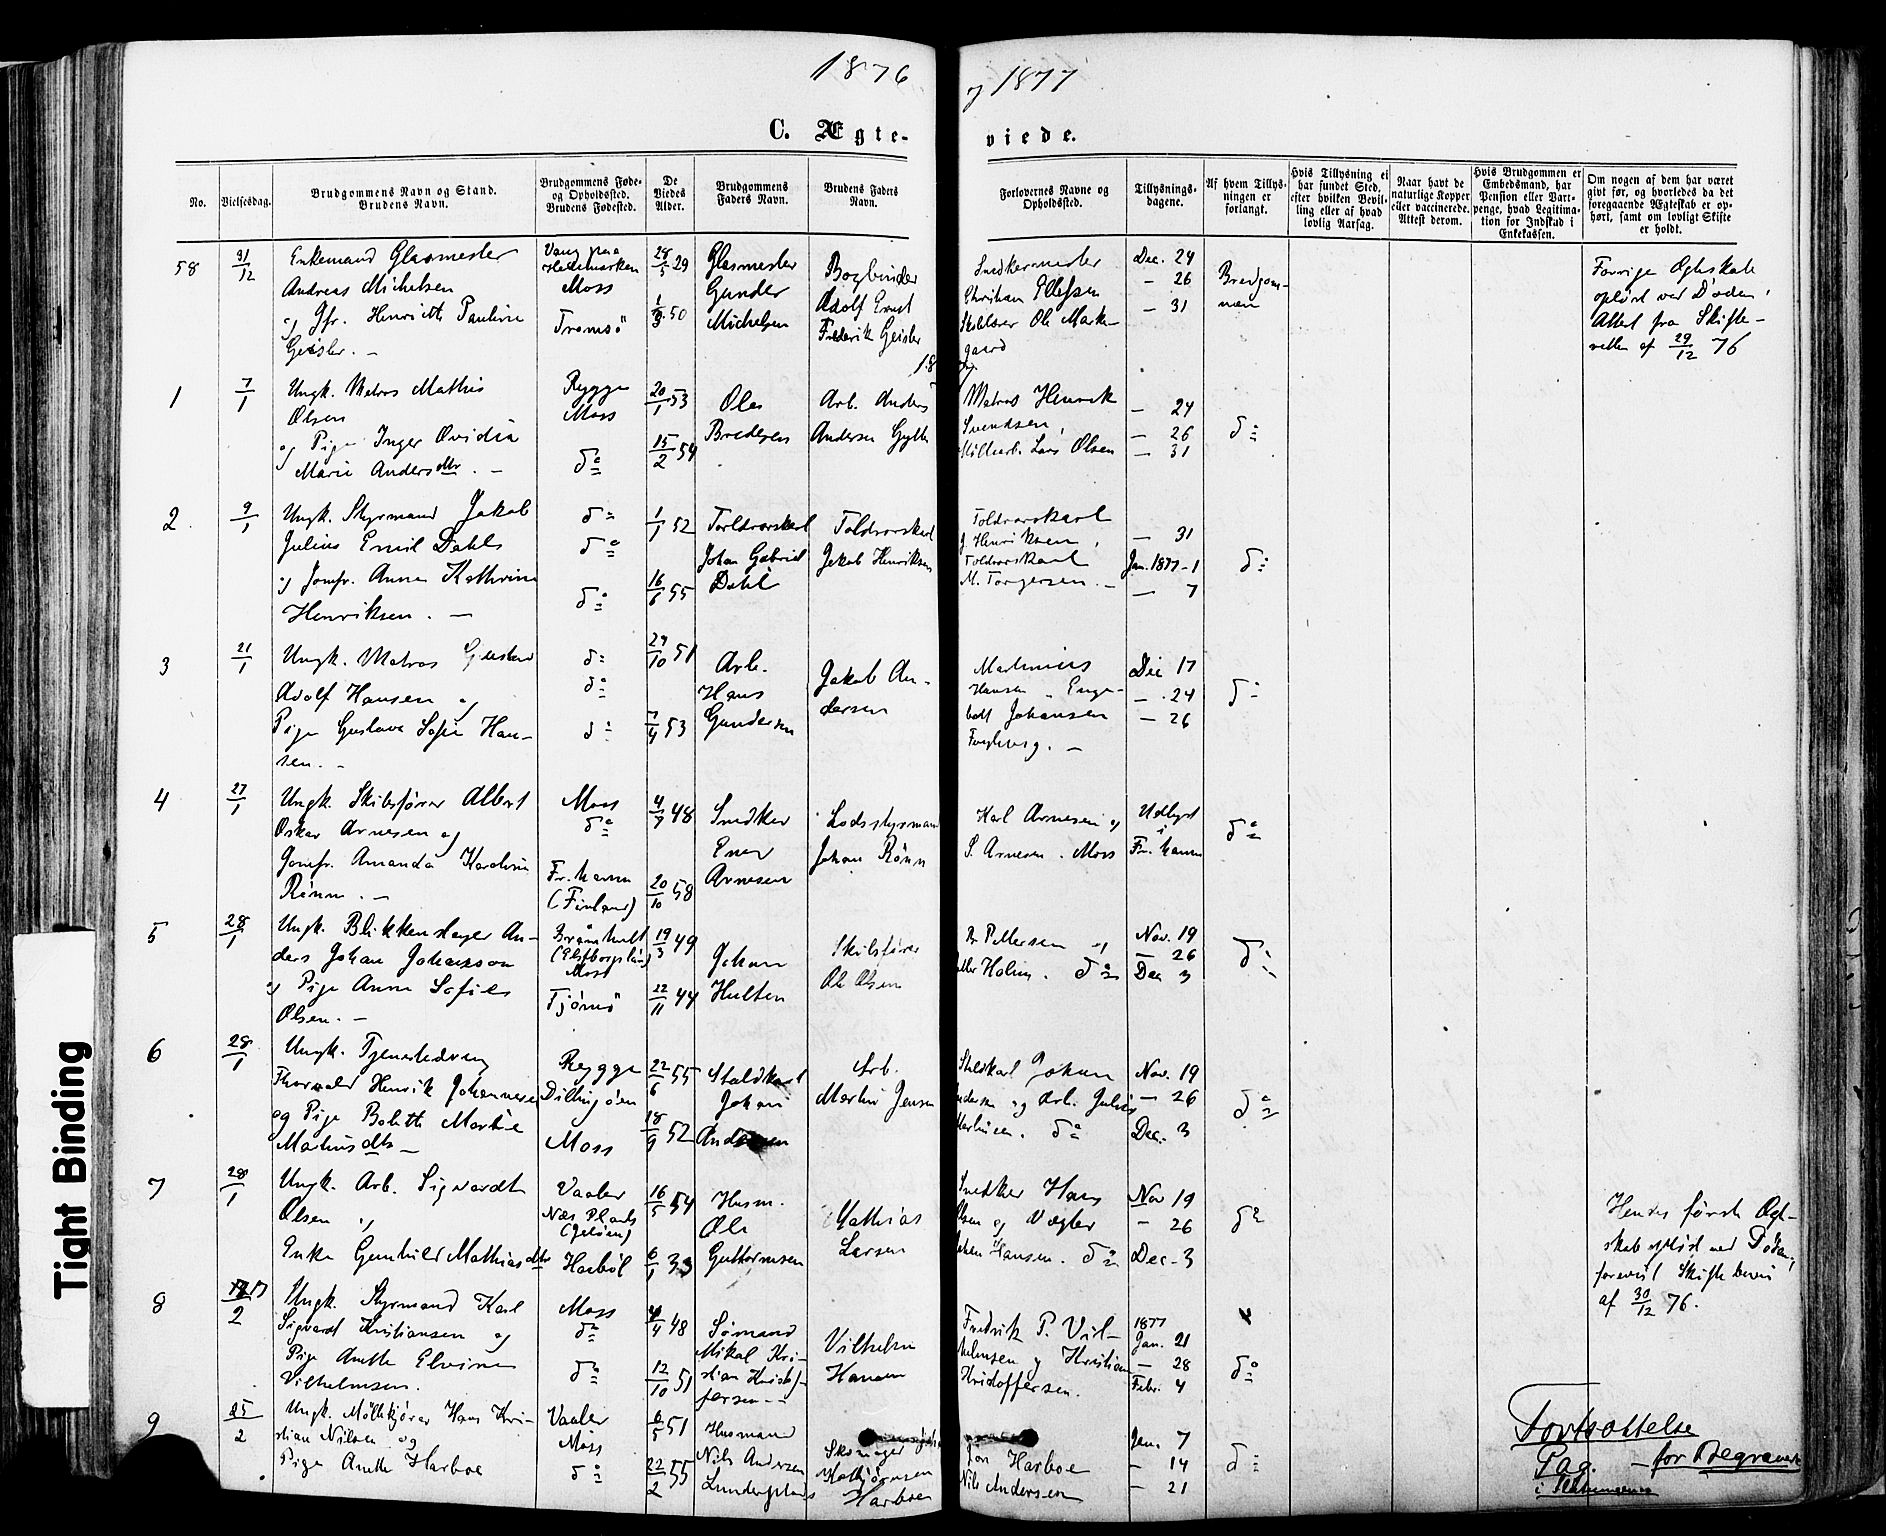 1876
og 1877
C. Ægte-
viede.
No.
Vielsesdag.
Brudgommens Navn og Stand.
Brudens Navn.
Brudgommens Føde-
og Opholdssted.
Brudens Fødested.
De
Viedes
Alder.
Brudgommens
Faders Navn.
Brudens Faders
Navn.
Forlovernes Navne og
Opholdssted.
Tillysnings-
dagene.
Af hvem Tillys-
ningen er
forlangt.
Hvis Tillysning ei
har fundet Sted,
efter hvilken Bevil-
ling eller af hvad
lovlig Aarsag.
Naar havt de
naturlige Kopper
eller vaccinerede.
Attest derom.
Hvis Brudgommen er
Embedsmand, har
Pension eller Vart-
penge, hvad Legitima-
tion for Indskud i
Enkekassen.
Om nogen af dem har været
givt før, og hvorledes da det
foregaaende Ægteskab er op-
hørt, samt om lovligt Skifte
er holdt.
58
31/12
Enkemand Glasmester
Andreas Michelsen
og Jfr. Henriette Pauline
Geisler. -
Vang paa
Hedemarken
Moss
Tromsö
28/5 29
50
Glasmester
Gunder
Michelsen
Bogbinder
Adolf Ernst
Frederik Geisler
Snedkermester
Christian Ellefsen
Skolelærer Ole Marke-
gaard
Dec. 24
- 26
- 31
Brudgom-
men
Forrige Ægteskab
opløst ved Døden,
Attest fra Skifte-
retten af 29/12 76
18
77.
1
7/1
Ungk. Matros Mathis
Olsen
og Pige Inger Ovidia
Marie Andersdtr. -
Rygge
Moss
do
20/1 53
15/2 54
Ole
Bredesen
Arb. Anders
Andersen Gylte
Matros Henrik
Svendsen,
Möllearb. Lars Olsen
- 24
- 26
- 31
do
2
9/1
Ungk. Styrmand Jakob
Julius Emil Dahl
og Jomfr. Anna Kathrine
Henriksen. -
do
do
do
1/1 52
16/6 55
Toldrorskarl
Johan Gabriel
Dahl
Toldrorskarl
Jakob Henriksen
Toldrorskarl
J. Henriksen,
Toldrorskarl
M. Torgersen. -
- 31
Jan. 1877 - 1
- 7
do
3
21/1
Ungk. Matros Gustav
Adolf Hansen og
Pige Gustava Sofie Han-
sen. -
do
do
do
29/10 51
7/4 53
Arb.
Hans
Gundersen
Jakob An-
dersen
Martinius
Hansen, Enge-
bret Johansen
Dec 17
- 24
- 26
do
4
27/1
Ungk. Skibsfører Albert
Oskar Arnesen og
Jomfr. Amanda Karoline
Rönn. -
Moss
do
Fr. hamn
(Finland)
4/7 48
20/10 58
Snedker
Ener
Arnesen
Lodsstyrmand
Johan Rönn
Karl Arnesen og
S. Arnesen. Moss
Udlyst
i
Fr. hamn
do
5
28/1
Ungk. Blikkenslager An-
ders Johan Johansson
og Pige Anna Sofie
Olsen. -
(Elfsborgslän)
Moss
Tjömö
19/3 49
22/11 44
Johan
Hulten
Skibsfører
Ole Olsen
Pettersen og
Holm. do
Nov. 19
- 26
Dec 3
do
6
28/1
Ungk. Tjenestedreng
Thorvald Henrik Johannesen
og Pige Bolette Martine
Martinsdtr -
Rygge
Dillingöen
Moss
22/6 55
18/9 52
Staldkarl
Johan
Andersen
Arb.
Martin Jensen
Staldkarl Johan
Andersen og Arb. Julius
do
Nov. 19
- 26
Dec. 3
do
7
28/1
Ungk. Arb. Sigvardt
Olsen og
Enke Gunhild Mathiasdtr
Vaaler
Næs Plads
(Jeløen)
Harböl
16/5 54
6/1 33
Husm.
Ole
Guttormsen
Mathias
Larsen
Snedker Hans
Olsen og Vægter
Hansen. do
Nov 19
- 26
Dec. 3
do
Hendes første Ægte-
skab opløst ved Døden,
forevist Skiftebevis
af 30/12 76.
8
2
Ungk. Styrmand Karl
Sigvardt Kristiansen og
Pige Anette Elvine
Vilhelmsen.
Moss
do
do
4/4 48
12/10 51
Sömand
Mikal Kri-
stian Kristof-
fersen -
Vilhelm
Hansen
Fredrik P. Vil-
helmsen og Kristian
Kristoffersen.
1877
Jan. 21
- 28
Febr. 4
do
9
25/2
Ungk. Möllekjører Hans Kri-
stian Nilsen og
Pige Anette Harboe
Vaaler
Moss
do
6/5 51
22/2 55
Husmand
Nils Andersen
Lunderplads
Skomager
Harboe
Harboe
Nils Andersen
Jan. 7
- 14
- 21
do
Fortsættelse
Pag. - for Begravede
Tight Binding